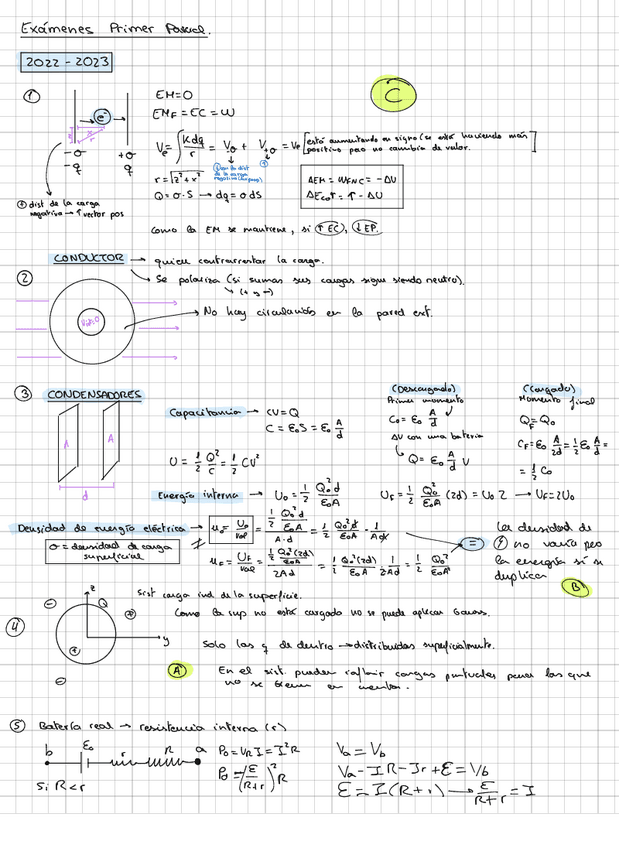 Exámenes Primer Parcial.
2022 - 2023
① EM=0
EM_F = EC = W
C
V_e = ∫ K dq / r = V_-σ + V_+σ = V_e [está aumentando en signo (se está haciendo más positivo pero no cambia de valor.]
-σ +σ
-q q
r = √(z² + x²)
Q = σ·S → dq = σ dS
ΔEM = W_FNC = -ΔU
ΔE_cot = ↑ - ΔU
⊕ dist de la carga negativa → ↑ vector pos
Como la EM se mantiene, si ↑EC, ↓EP.
CONDUCTOR → quiere contrarrestar la carga.
② → Se polariza (si sumas sus cargas sigue siendo neutro).
(+ y -)
→ No hay circulación en la pared ext.
③ CONDENSADORES
A A
d
Capacitancia → CV = Q
C = ε₀S = ε₀ A/d
U = 1/2 Q²/C = 1/2 CV²
(Descargado)
Primer momento
C₀ = ε₀ A/d
ΔV con una batería
Q = ε₀ A/d V
(Cargado)
Momento final
Q_F = Q₀
C_F = ε₀ A/2d = 1/2 ε₀ A/d =
= 1/2 C₀
Energía interna → U₀ = 1/2 Q₀²d/ε₀A
U_F = 1/2 Q₀²/ε₀A (2d) = U₀ 2 → U_F = 2U₀
Densidad de energía eléctrica → u₀ = U₀/Vol = (1/2 Q₀²d/ε₀A)/(A·d) = 1/2 Q₀²d/ε₀A · 1/Ad
σ = densidad de carga superficial
u_F = U_F/Vol = (1/2 Q₀²(2d)/ε₀A)/(2Ad) = 1/2 Q₀²(2d)/ε₀A · 1/2Ad = 1/2 Q₀²/ε₀A²
=
La densidad de no varía pero la energía sí se duplica
B
Sist carga ind. de la superficie.
④ z
y
Como la sup no está cargado no se puede aplicar Gauss.
Solo las q de dentro → distribuidas superficialmente.
A
En el sist. pueden influir cargas puntuales pero las que no se tienen en cuenta.
⑤ Batería real → resistencia interna (r)
b ε₀ r R a
Si R < r
P₀ = V_R I = I²R
P₀ = (ε/(R+r))² R
V_a = V_b
V_a - IR - Ir + ε = V_b
ε = I(R+r) → ε/(R+r) = I